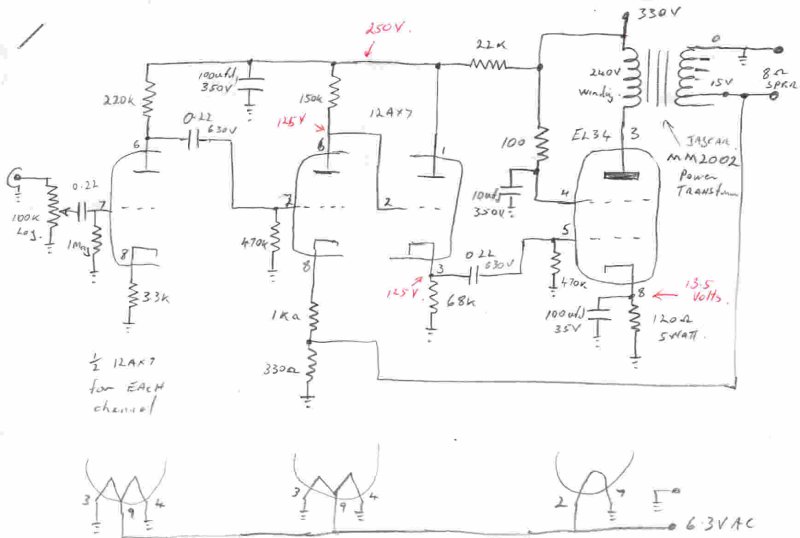 330V
250V.
22K
0
100ufd
350V
240V
Winding.
8Ω
SPKR
220k
150k
15V
0.22
630V
12AX7
125V
6
6
1
100
EL34
3
JAYCAR
MM2002
Power
0.22
10ufd
350V
4
7
7
2
5
100K
Log.
1Meg
470k
0.22
630V
8
8
3
125V
470k
8
13.5
Volts.
3.3K
68K
100ufd
35V
120Ω
5Watt.
1KΩ
330Ω
½ 12AX7
for EACH
channel
3
9
4
3
9
4
2
7
6.3V AC